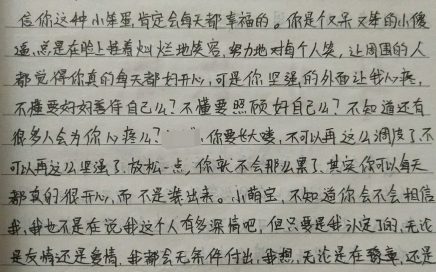 信你这种小笨蛋,肯定会每天都幸福的。你是个又呆又笨的小傻
逼,总是在脸上挂着灿烂地笑容,努力地对每个人笑,让周围的人
都觉得你真的每天都好开心,可是你坚强的外面让我心疼,
不懂要好好善待自己么?不懂要照顾好自己么?不知道还有
很多人会为你心疼么? 你要长大喽,不可以再这么调皮了.不
可以再这么坚强了.放松一点,你就不会那么累了.其实你可以每天
都真的很开心,而不是装出来。小萌宝,不知道你会不会相信
我,我也不是在说我这个人有多深情吧,但只要是我认定了的,无论
是友情还是爱情,我都会无条件付出,我想,无论是在 还是